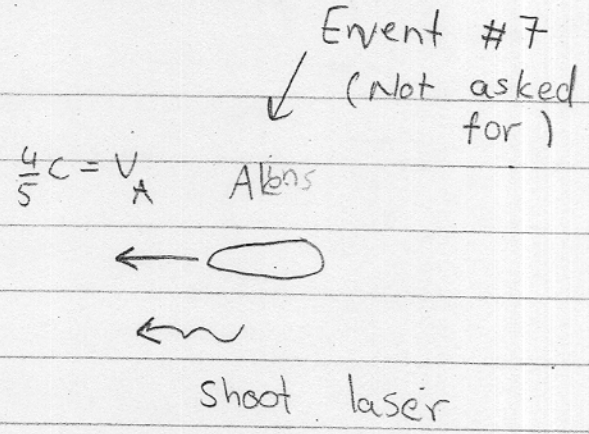 Event #7
(Not asked
for)
4/5 c = V_A
shoot laser